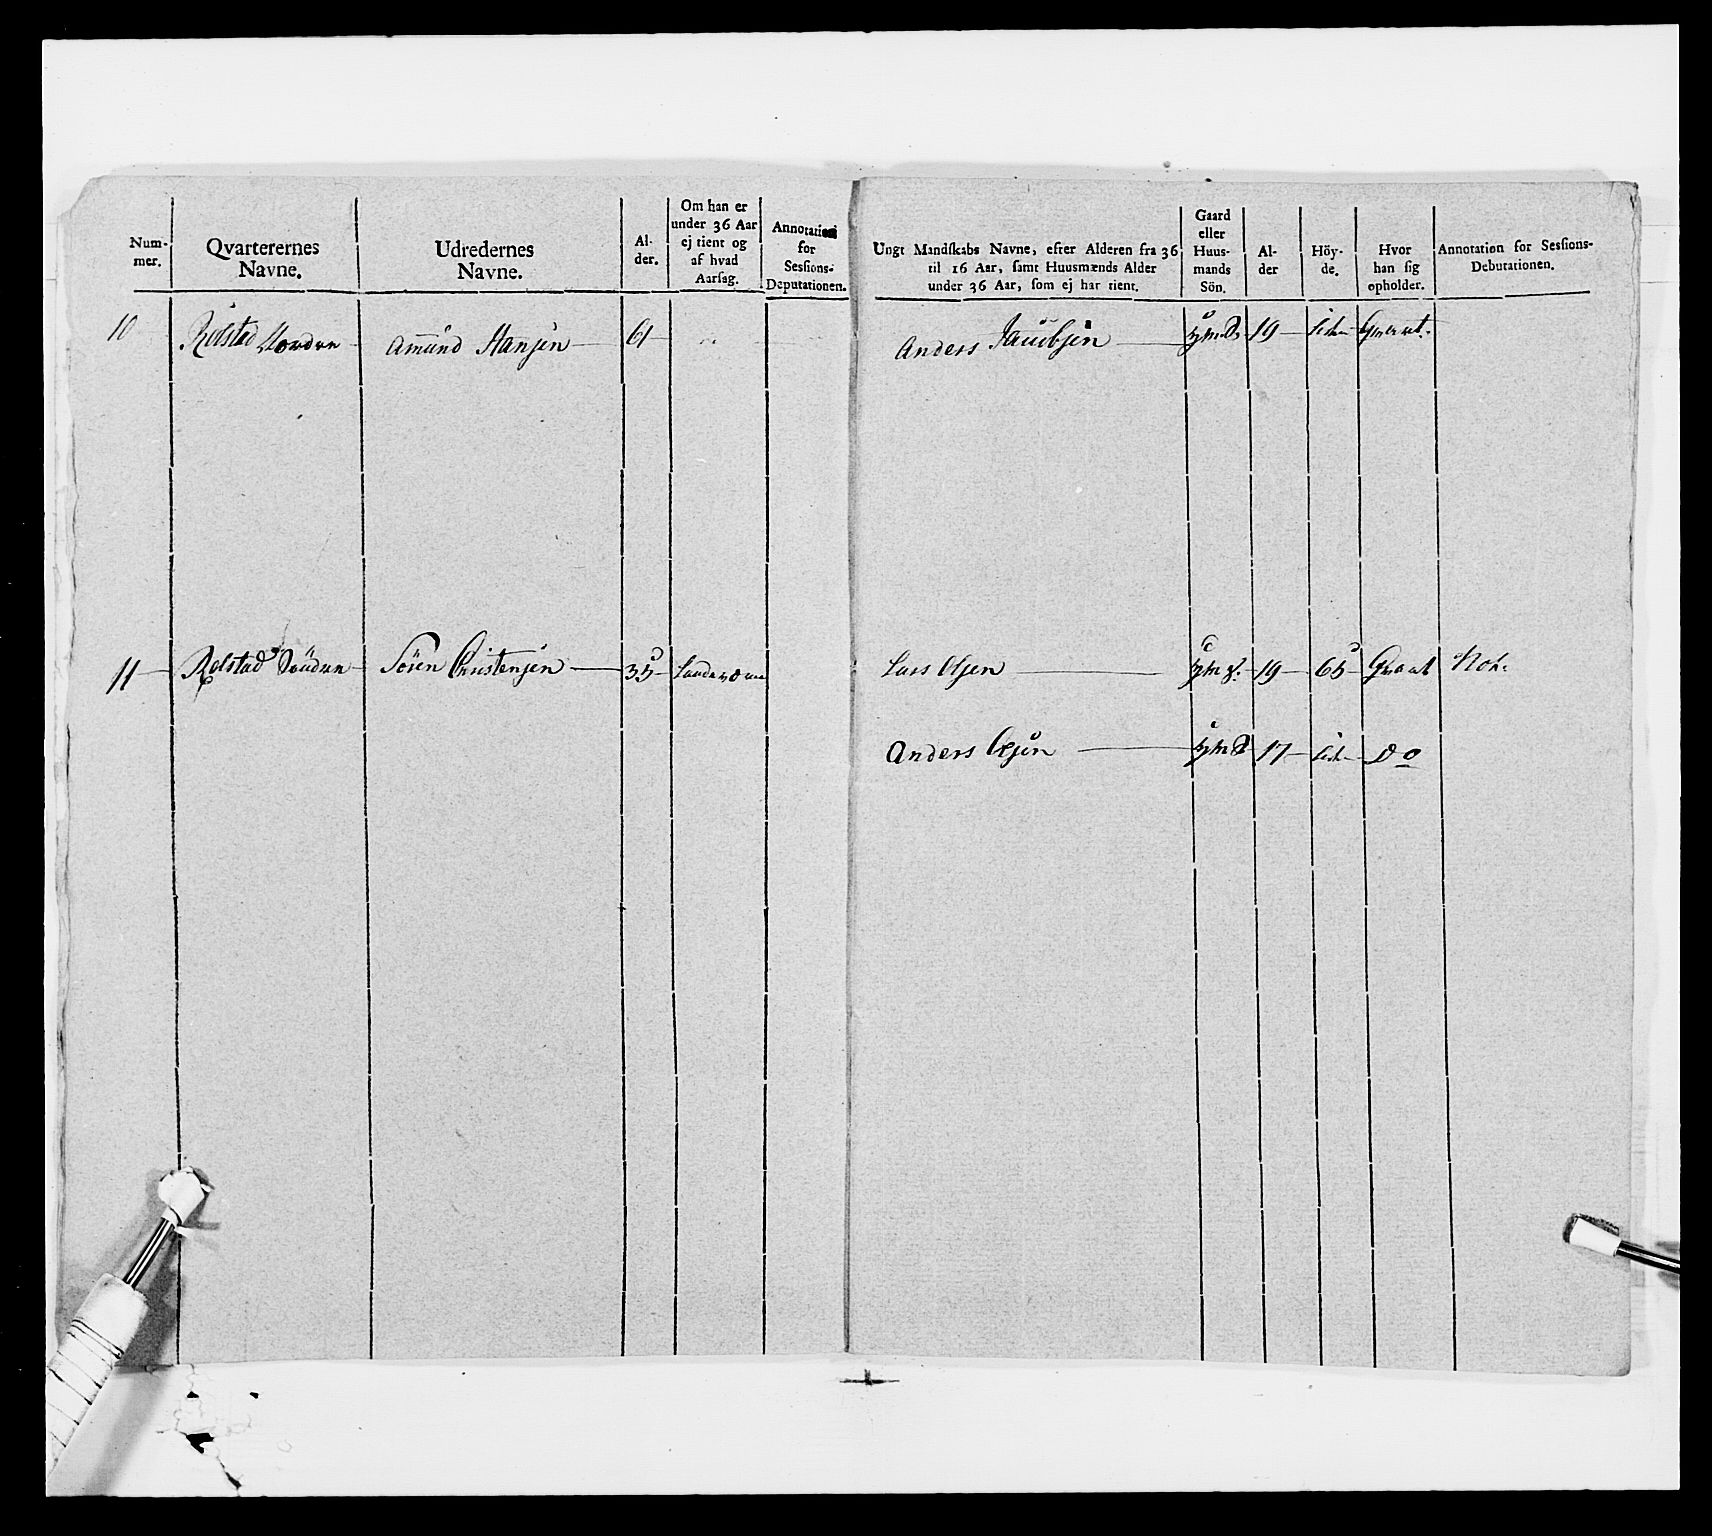 Num-
mer.
Qvarterernes
Navne.
Udredernes
Navne.
Al-
der.
Om han er
under 36 Aar
ej tient og
af hvad
Aarsag.
Annotation
for
Sessions-
Deputationen.
Ungt Mandskabs Navne, efter Alderen fra 36
til 16 Aar, samt Huusmænds Alder
under 36 Aar, som ej har tient.
Gaard
eller
Huus-
mands
Sön.
Al-
der
Höy-
de.
Hvor
han sig
opholder.
Annotation for Sessions-
Debutationen.
10 Rolstad Nordre Amund Hansen 61 Anders Jacobsen 19
11 Rolstad Søndre Sören Christensen 35 Lars Olsen 19 65
Anders Olsen 17 Do